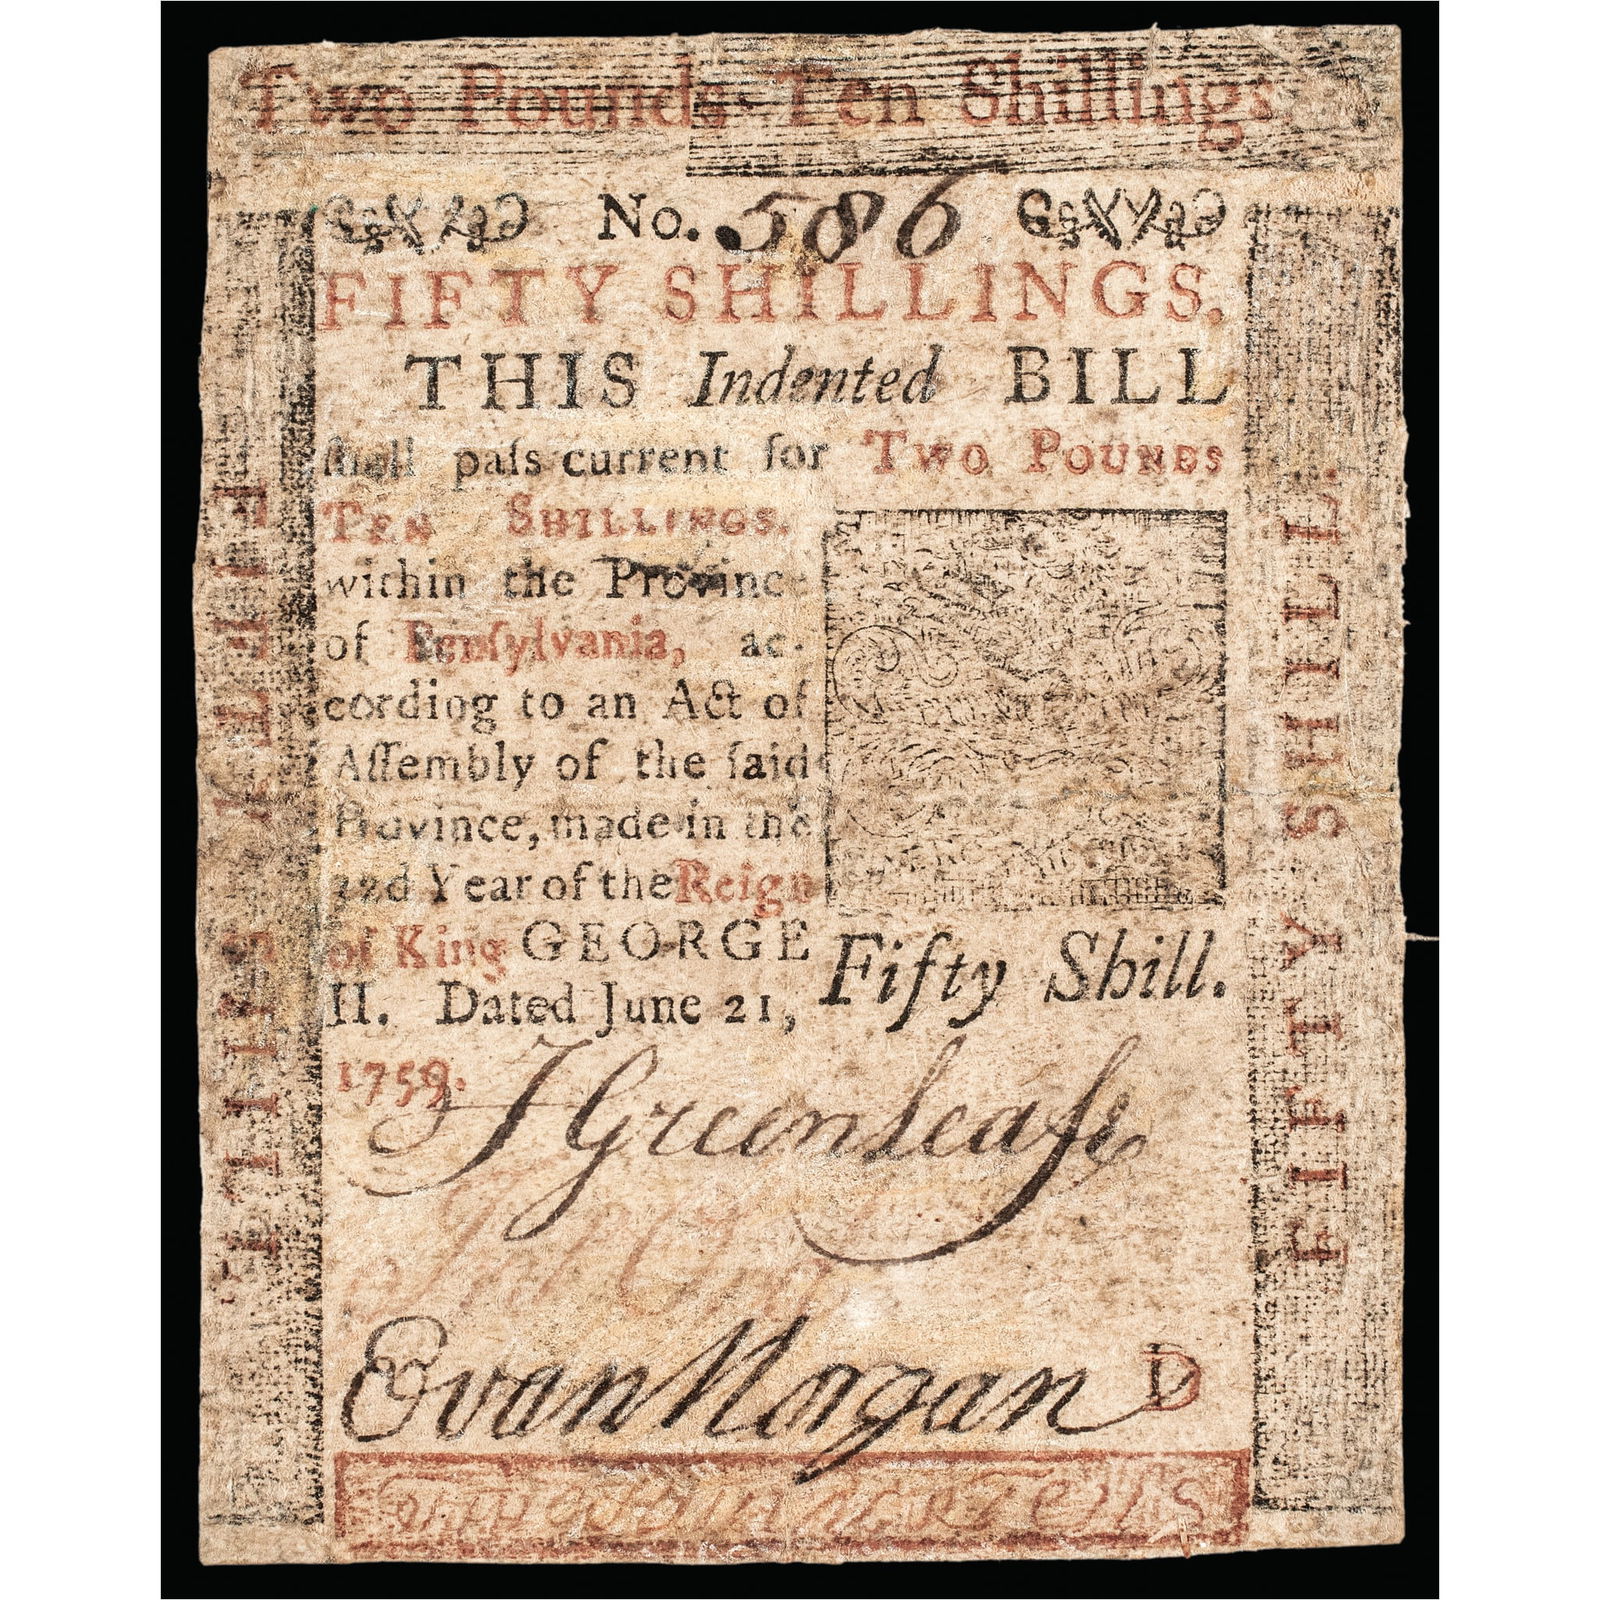 Two Pounds Ten Shillings
No. 586
FIFTY SHILLINGS.
THIS Indented BILL
ſhall paſs current for Two Pounds
Ten Shillings.
within the Province
of Penſylvania, ac-
cording to an Act of
Aſſembly of the ſaid
Province, made in the
22d Year of the Reign
of King GEORGE
II. Dated June 21,
1759.
Fifty Shill.
J Greenleafe
Evan Morgan
D
FIFTY SHILL.